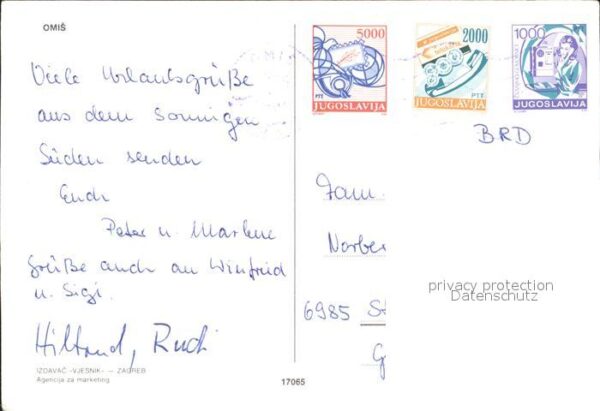 OMIŠ
Viele Urlaubsgrüße
aus dem sonnigen
Süden senden
Euch
Peter u. Marlene
Grüße auch an Winfried
u. Sigi.
Hiltrud, Rudi
IZDAVAČ »VJESNIK« — ZAGREB
Agencija za marketing
17065
5000
PTT
JUGOSLAVIJA
2000
PTT
JUGOSLAVIJA
1000
JUGOSLAVIJA
BRD
Fam.
Norber
privacy protection
Datenschutz
6985 St
G